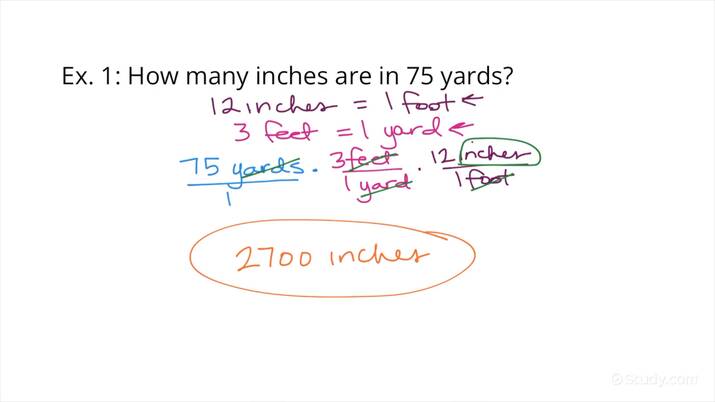 Ex. 1: How many inches are in 75 yards?
12 inches = 1 foot ←
3 feet = 1 yard ←
75 yards · 3 feet · 12 inches
1 1 yard 1 foot
2700 inches
Study.com